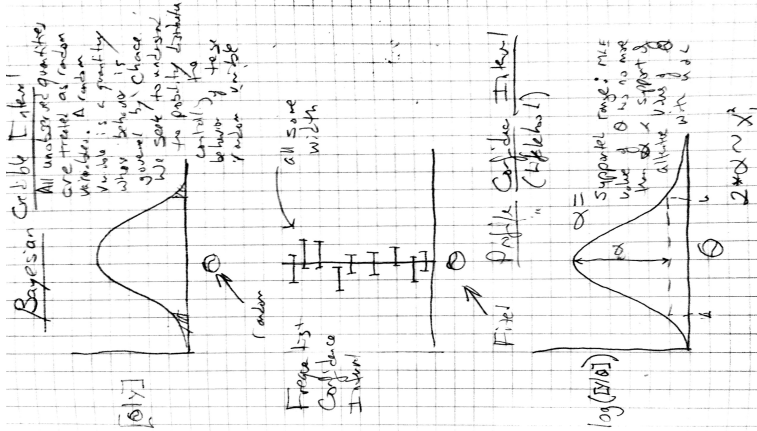 Bayesian Credible Interval
All unobserved quantities
are treated as random
variables. A random
variable is a quantity
whose behavior is
governed by chance.
We seek to understand
the probility distributn
controll
behavior of these
random varible
[θ|y]
θ
random
Frequentist
Confidence
Interval
all same
width
θ
Fixed
Profile Confidence Interval
(Likelihood)
α =
Supported range: MLE
value of θ has no more
than α x support of
alternative values of θ
with
log([y|θ])
α
θ
2*α ~ χ²₁